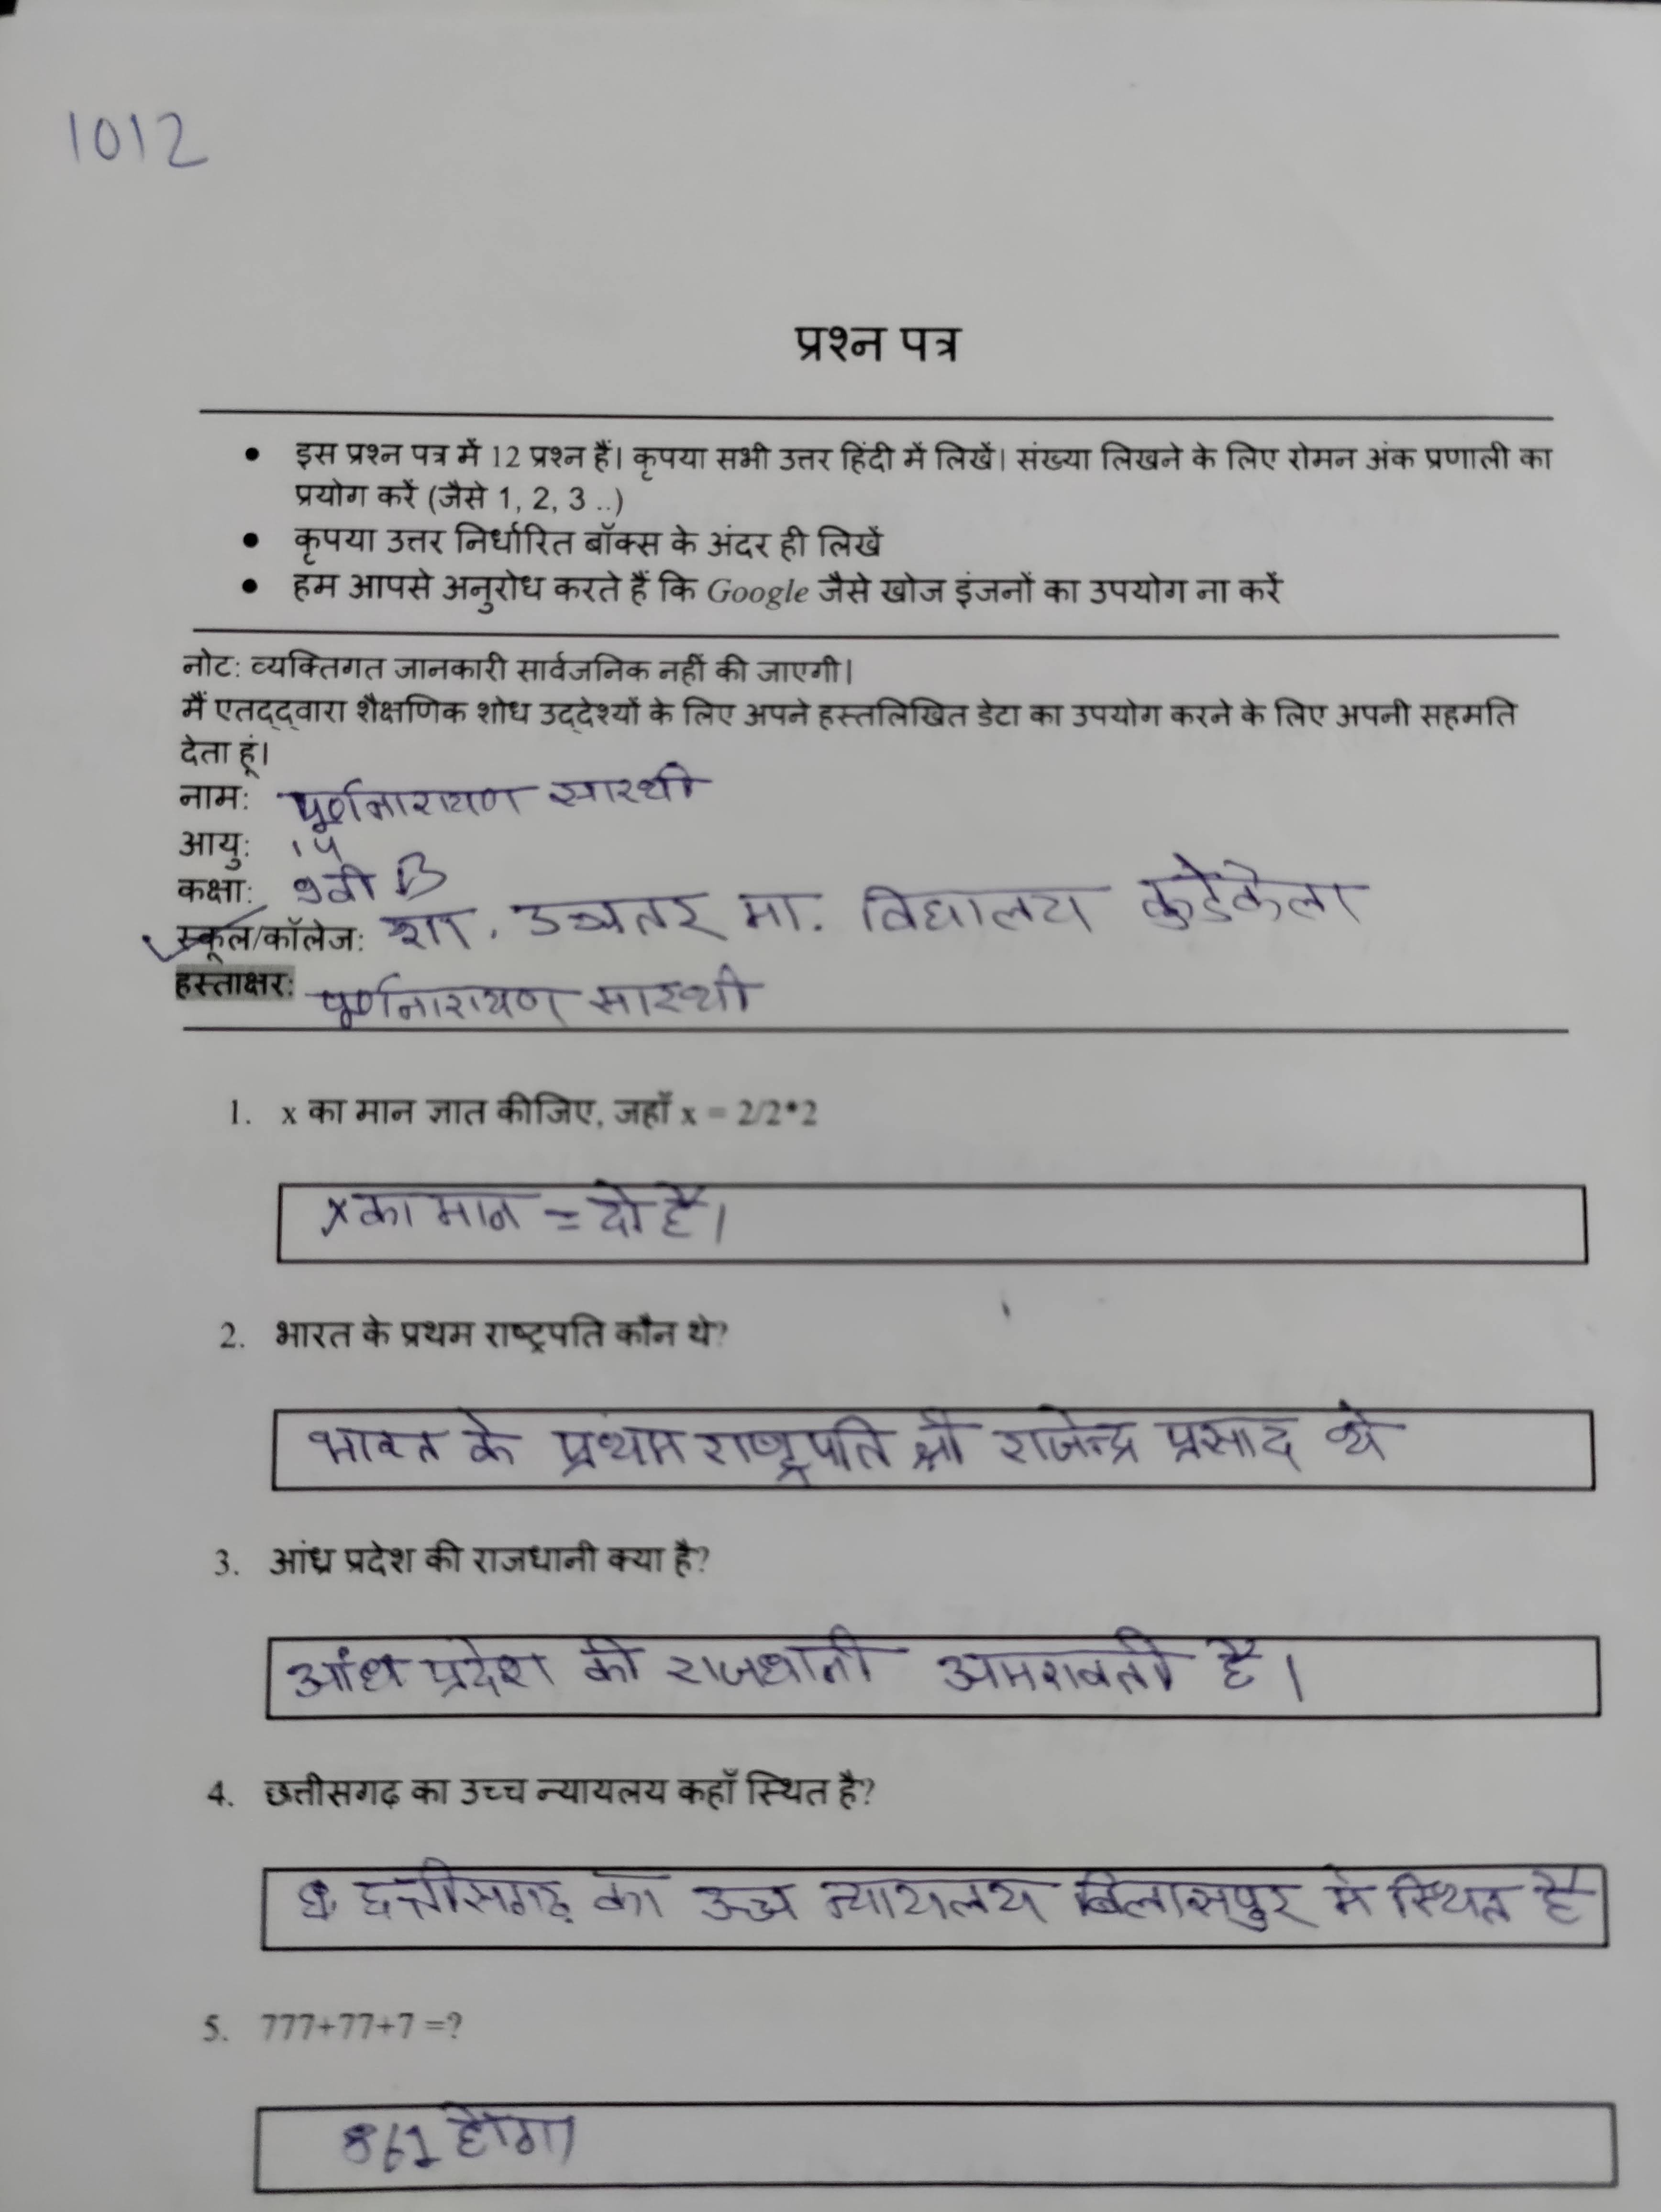 1012
प्रश्न पत्र
• इस प्रश्न पत्र में 12 प्रश्न हैं। कृपया सभी उत्तर हिंदी में लिखें। संख्या लिखने के लिए रोमन अंक प्रणाली का
प्रयोग करें (जैसे 1, 2, 3 ..)
• कृपया उत्तर निर्धारित बॉक्स के अंदर ही लिखें
• हम आपसे अनुरोध करते हैं कि Google जैसे खोज इंजनों का उपयोग ना करें
नोट: व्यक्तिगत जानकारी सार्वजनिक नहीं की जाएगी।
मैं एतद्द्वारा शैक्षणिक शोध उद्देश्यों के लिए अपने हस्तलिखित डेटा का उपयोग करने के लिए अपनी सहमति
देता हूं।
नाम: पूर्णनारायण सारथी
आयु: 14
कक्षा: 9वी B
स्कूल/कॉलेज: शा. उच्चतर मा. विद्यालय कुडेकेला
हस्ताक्षर: पूर्णनारायण सारथी
1. x का मान ज्ञात कीजिए, जहाँ x = 2/2*2
x का मान = दो है।
2. भारत के प्रथम राष्ट्रपति कौन थे?
भारत के प्रथम राष्ट्रपति श्री राजेन्द्र प्रसाद थे
3. आंध्र प्रदेश की राजधानी क्या है?
आंध्र प्रदेश की राजधानी अमरावती है।
4. छत्तीसगढ़ का उच्च न्यायलय कहाँ स्थित है?
छत्तीसगढ़ का उच्च न्यायलय बिलासपुर मे स्थित है
5. 777+77+7 =?
861 होगा